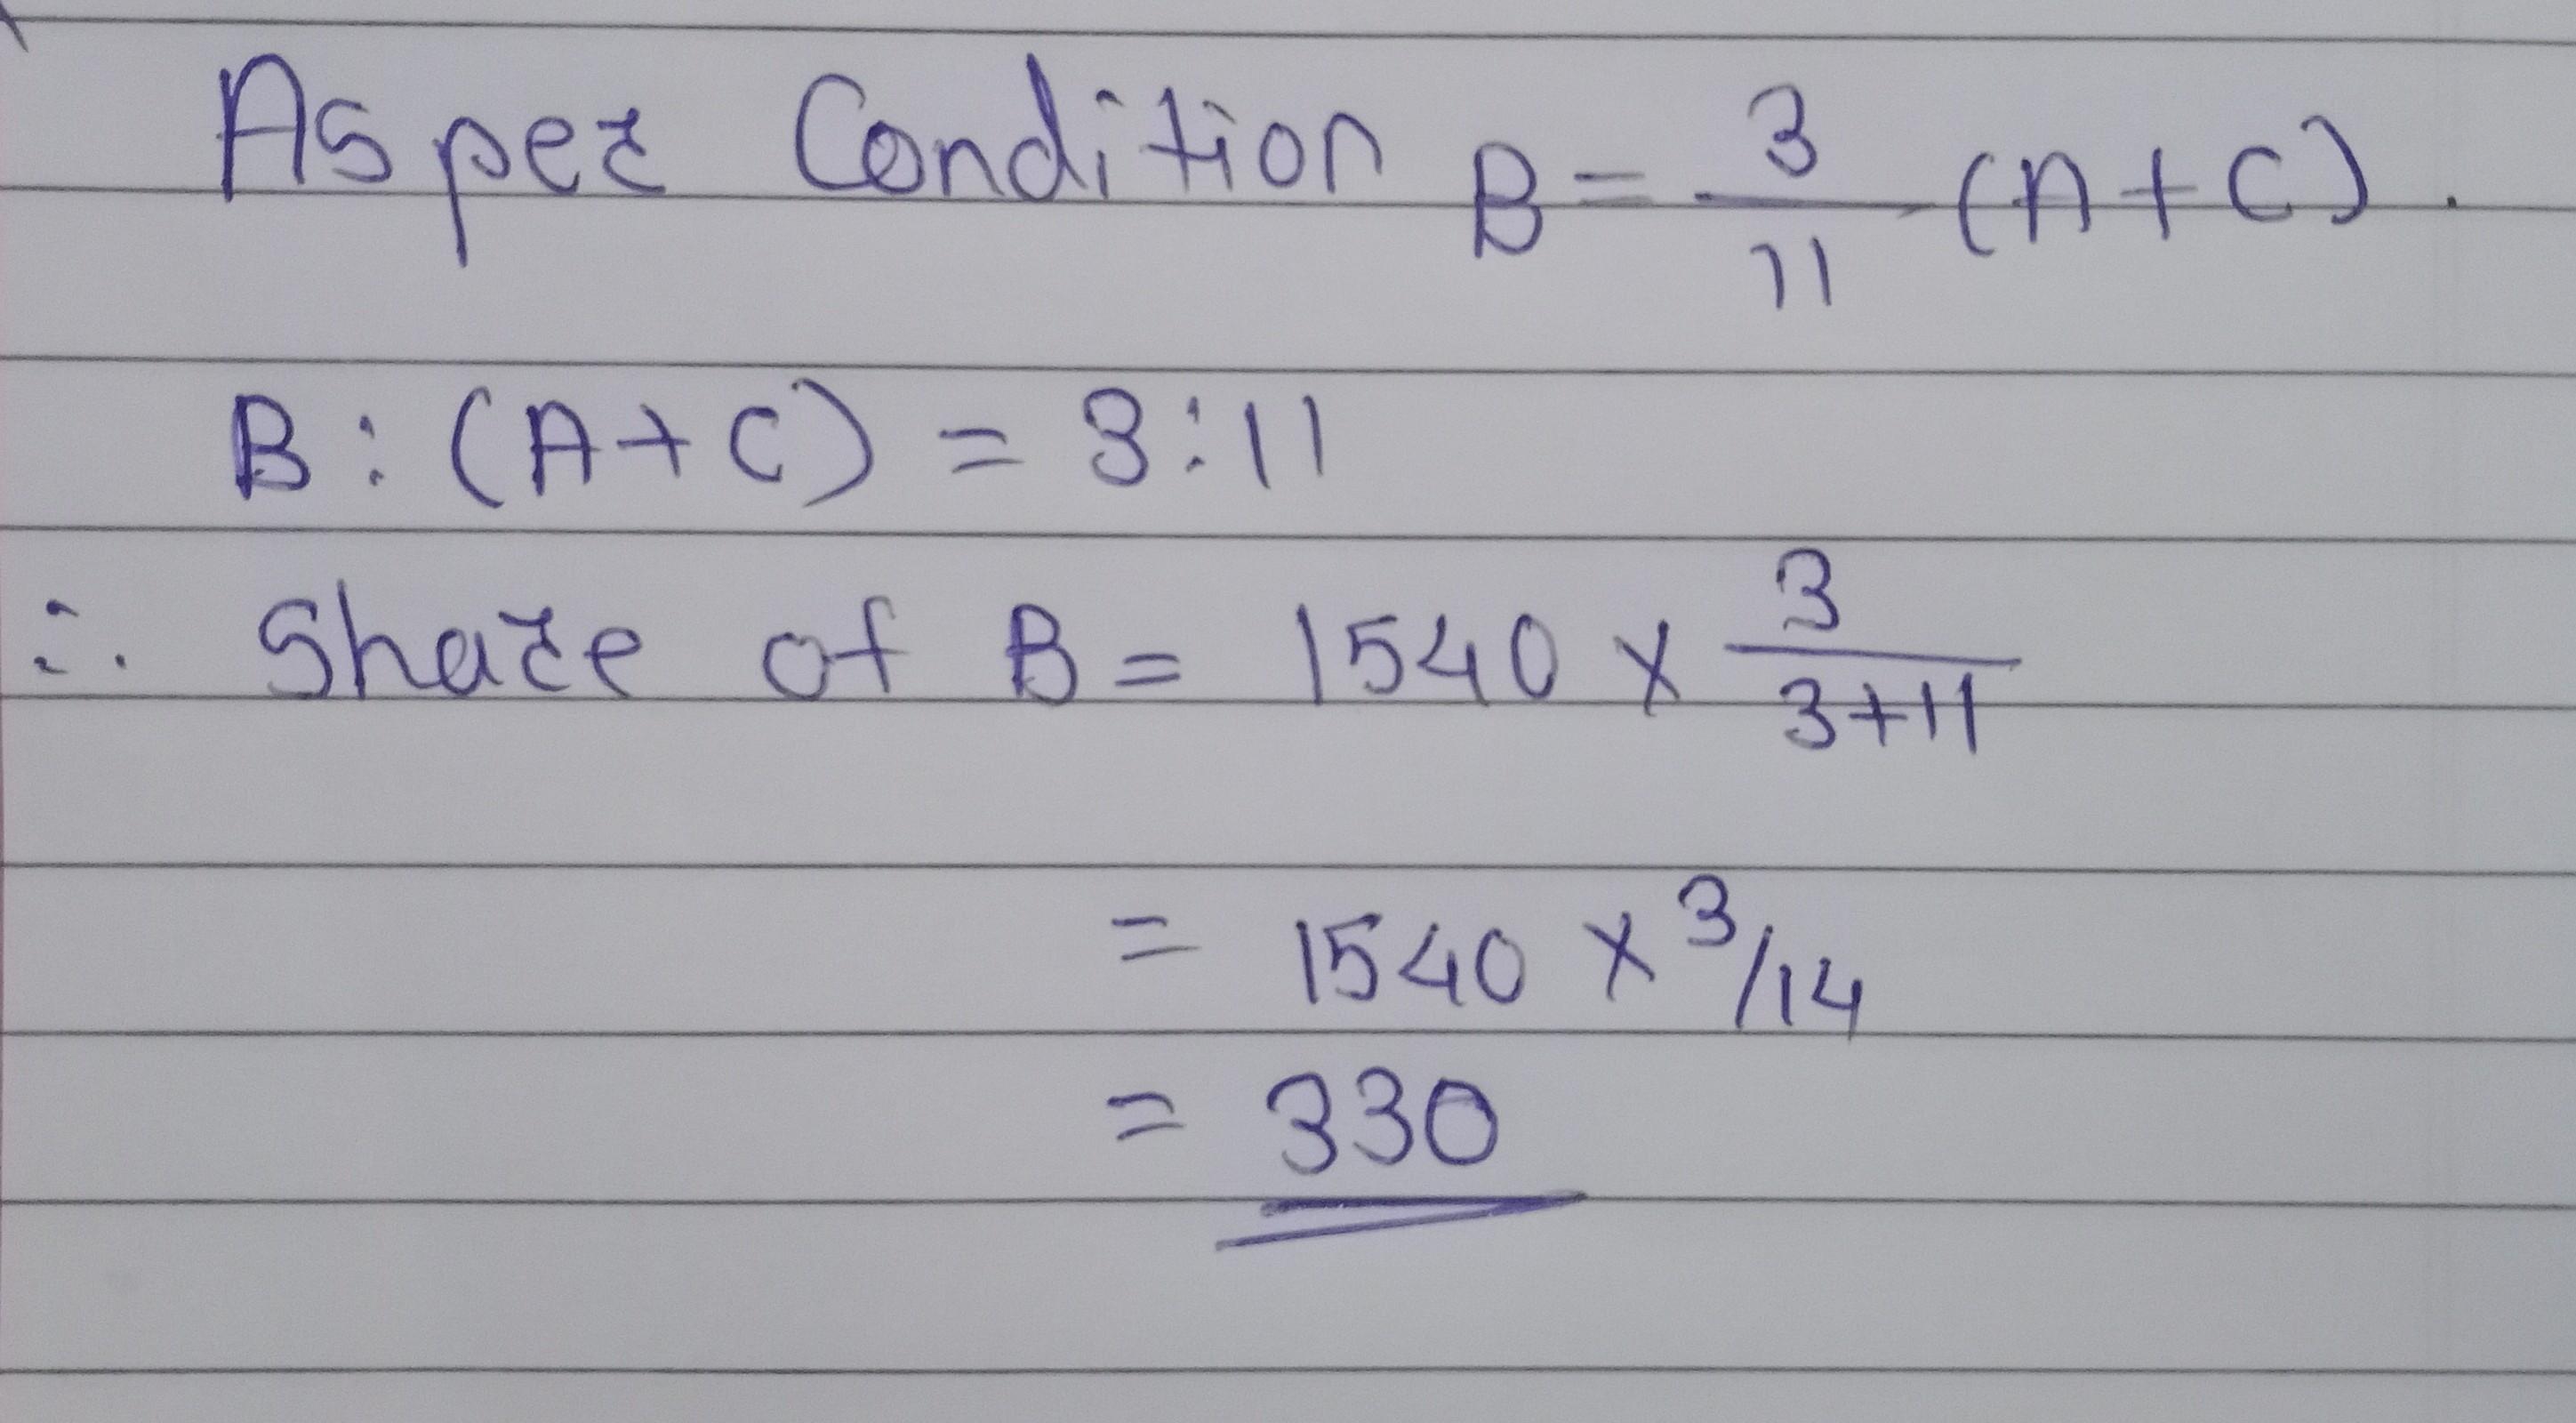 As per Condition B = 3/11 (A+C).
B : (A+C) = 3:11
∴ Share of B = 1540 × 3/3+11
= 1540 × 3/14
= 330